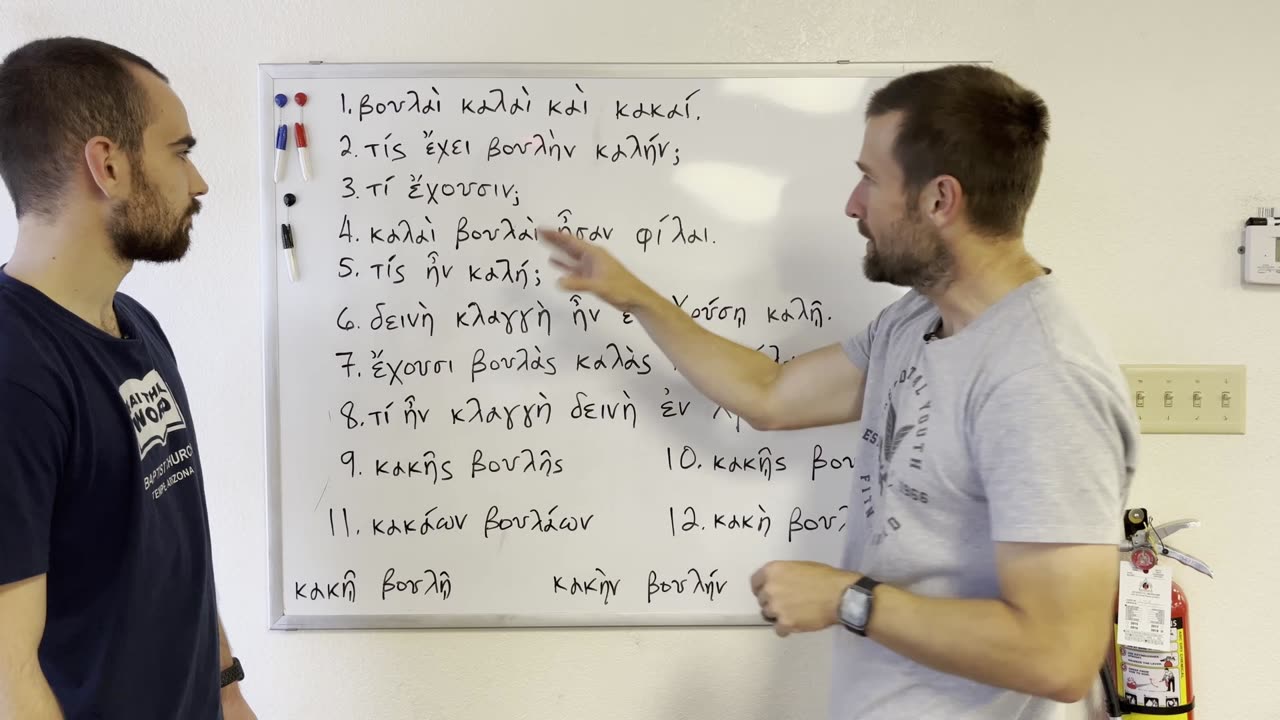 1. βουλαὶ καλαὶ κὰι κακαί.
2. τίς ἔχει βουλὴν καλήν;
3. τί ἔχουσιν;
4. καλαὶ βουλαὶ ἦσαν φίλαι.
5. τίς ἦν καλή;
6. δεινὴ κλαγγὴ ἦν Χρύσῃ καλῇ.
7. ἔχουσι βουλὰς καλὰς
8. τί ἦν κλαγγὴ δεινὴ ἐν
9. κακῆς βουλῆς 10. κακῇς
11. κακάων βουλάων 12. κακὴ
κακῇ βουλῇ κακὴν βουλήν
BAPTIST CHURCH
TEMPE, ARIZONA